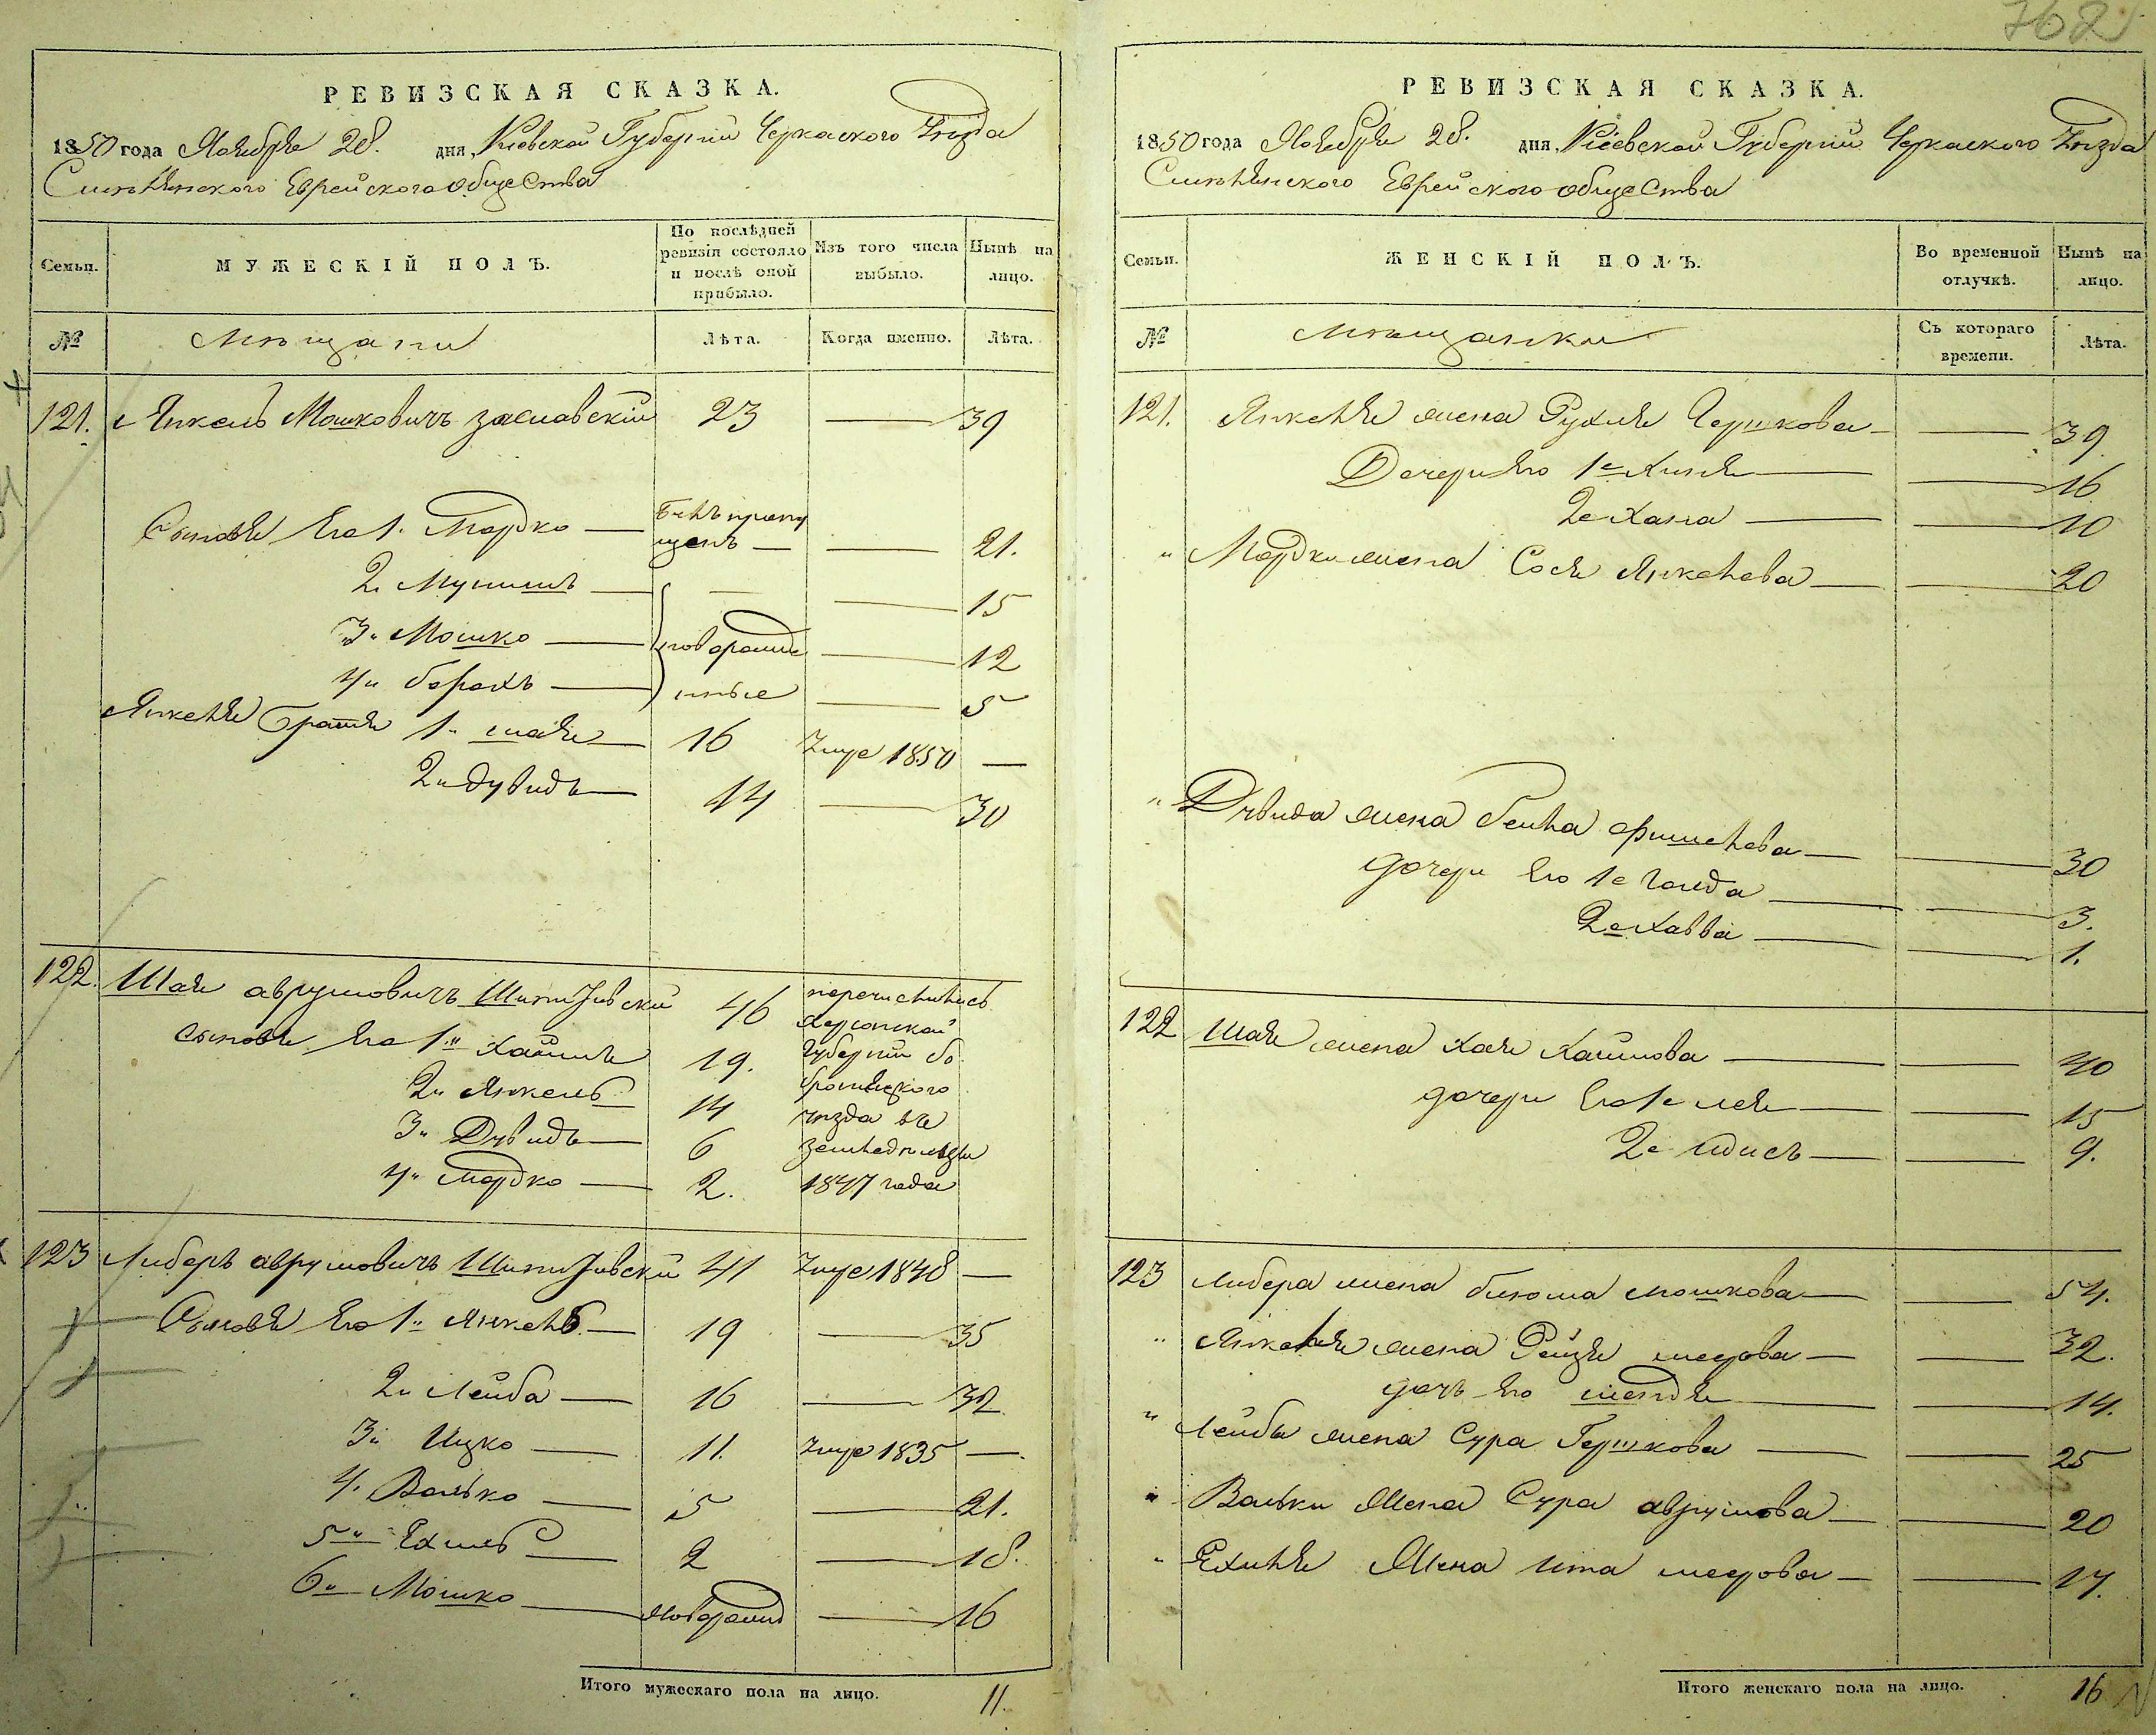 762
РЕВИЗСКАЯ СКАЗКА.
1850 года Ноября 28. дня, Кіевской Губерніи Черкаского Уѣзда
Смѣлянского Еврейского общества
Семьи.
МУЖЕСКІЙ ПОЛЪ.
По послѣдней ревизіи состояло и послѣ оной прибыло.
Изъ того числа выбыло.
Нынѣ на лицо.
№
мѣщани
Лѣта.
Когда именно.
Лѣта.
121. Янкель Мошковичъ Заславскій 23 — 39
Сыновя Его 1. Мордко — былъ пропущенъ — — 21.
2. Мунишъ — — — 15
3. Мошко — новорожденные — 12
4. борохъ — — 5
Янкеля Братя 1. шая — 16 Умре 1850 —
2. Дувидъ — 14 — 30
122. Шая аврумовичъ 46 перечислились
сыновя Его 1. Хаимъ 19. Херсонской
2. Янкель 14 Губерніи бобринецкого
3. Дувидъ — 6 уѣзда въ
4. Мордко — 2. земледѣльцы 1847 года
123 Либеръ аврумовичъ 41 Умре 1848 —
Сыновя Его 1. Янкель. — 19 — 35
2. Лейба — 16 — 32
3. Ицко — 11. Умре 1835 —.
4. Волько — 5 — 21.
5. Ехиль — 2 — 18.
6. Мошко — новорожд — 16
Итого мужескаго пола на лицо. 11.
РЕВИЗСКАЯ СКАЗКА.
1850 года Ноября 28. дня, Кіевской Губерніи Черкаского Уѣзда
Смѣлянского Еврейского общества
Семьи.
ЖЕНСКІЙ ПОЛЪ.
Во временной отлучкѣ.
Нынѣ на лицо.
№
мѣщанки
Съ котораго времени.
Лѣта.
121. Янкеля жена Рухля Гершкова — — 39
Дочери Его 1е Хиня — — 16
2е Хана — — 10
" Мордки жена Сося Янкелева — — 20
" Дувида жена бейла фишелева — — 30
дочери Его 1е Голда — — 3.
2е Хавва — — 1.
122 Шаи жена Хая Хаимова — — 40
дочери Его 1е лея — — 15
2е Идись — — 9.
123 Либера жена блюма мошкова — — 54.
" Янкеля жена Рейзя шедрова — — 32.
дочь Его шендя — — 14.
" Лейбы жена Сура Гершкова — — 25
" Вольки Жена Сура аврумова — — 20
" Ехиля Жена Ита шедрова — — 17.
Итого женскаго пола на лицо. 16